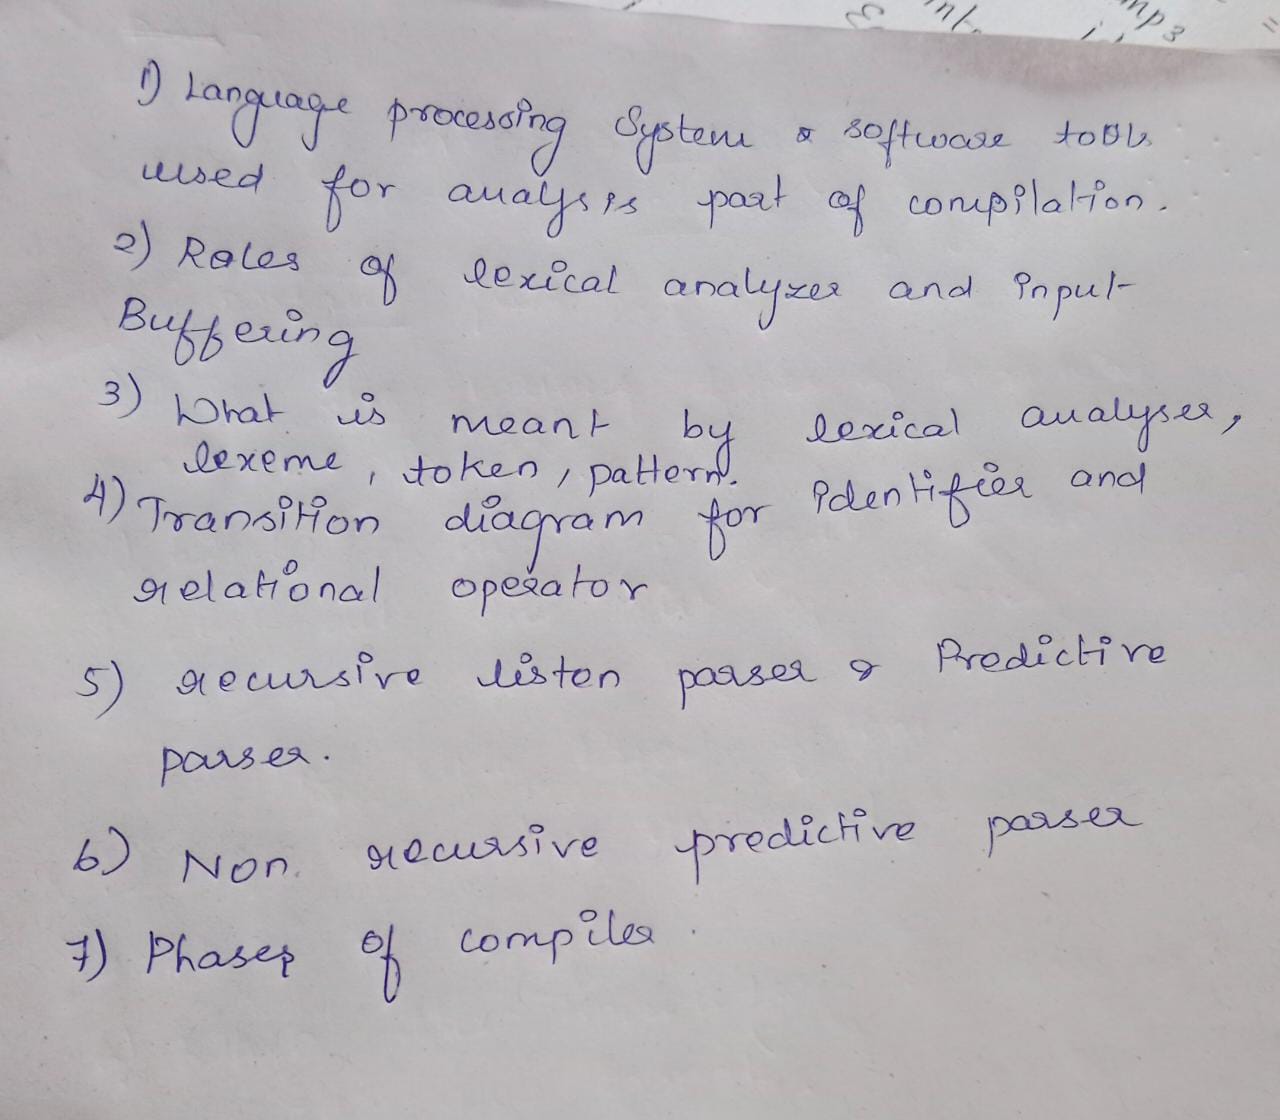 mp3
1) Language processing System & software tools
used for analysis part of compilation.
2) Roles of lexical analyzer and input
Buffering
3) What is meant by lexical analyser,
lexeme, token, pattern.
4) Transition diagram for identifier and
relational operator
5) recursive listen parser & Predictive
parser.
6) Non. recursive predictive parser
7) Phases of compiler.